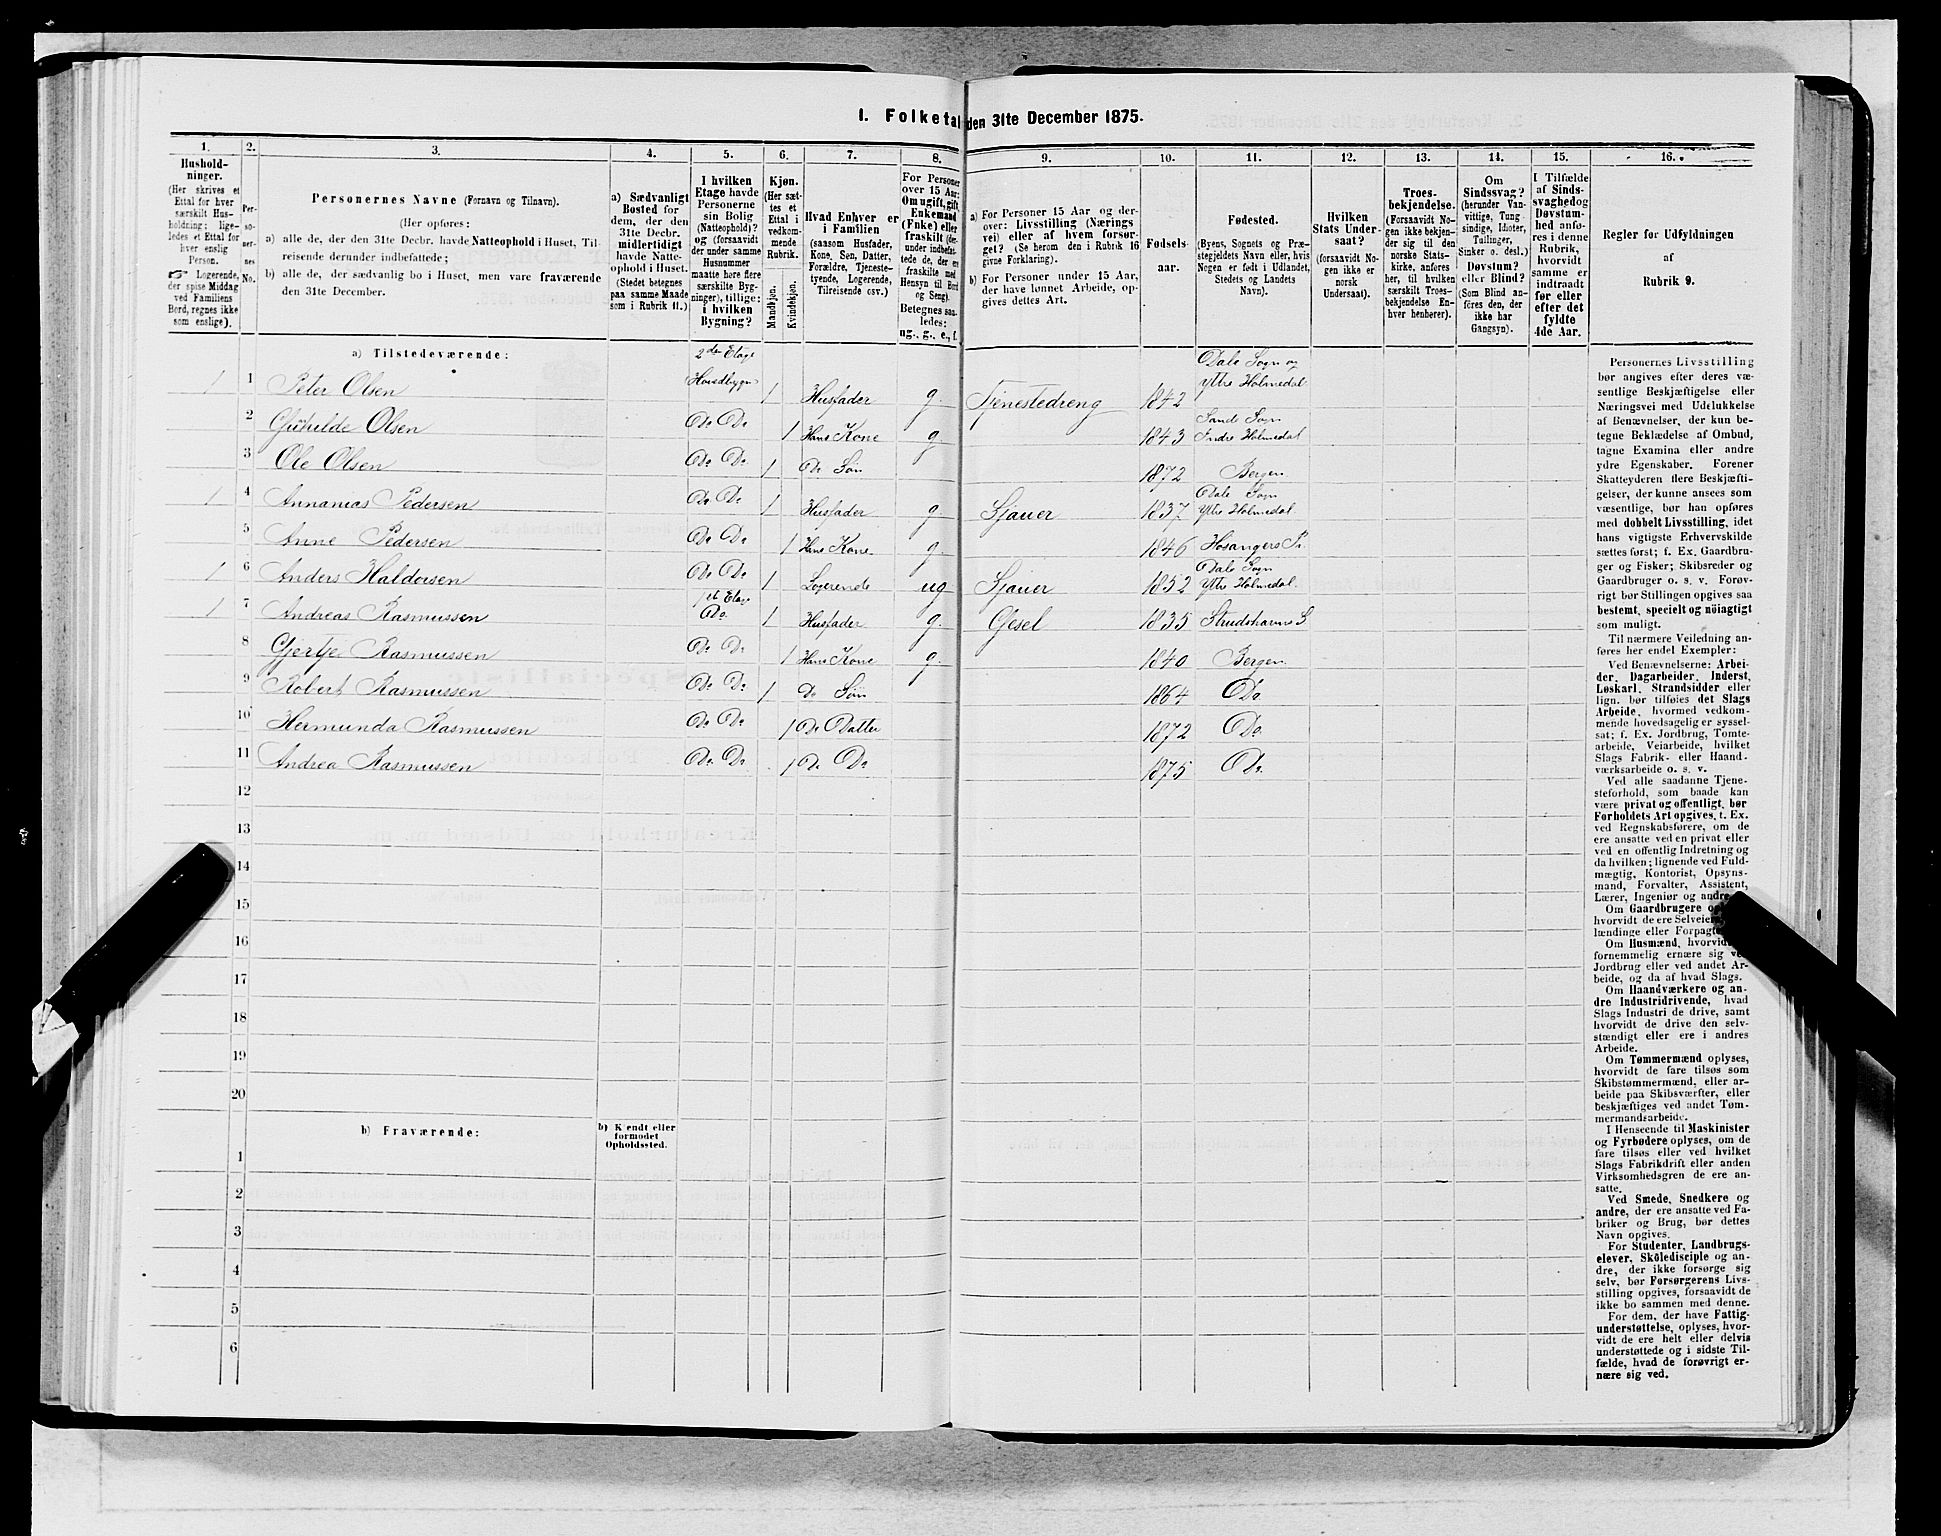 1. Folketal den 31te December 1875.
1.
Hushold-
ninger.
(Her skrives et
Ettal for hver
særskilt Hus-
holdning; lige-
ledes et Ettal for
hver enslig
Person.
Logerende,
der spise Middag
ved Familiens
Bord, regnes ikke
som enslige).
2.
Per-
so-
ner-
nes
No.
3.
Personernes Navne (Fornavn og Tilnavn).
(Her opføres:
a) alle de, der den 31te Decbr. havde Natteophold i Huset, Til-
reisende derunder indbefattede;
b) alle de, der sædvanlig bo i Huset, men vare fraværende
den 31te December.
4.
a) Sædvanligt
Bosted for
dem, der den
31te Decbr.
midlertidigt
havde Natte-
ophold i Huset.
(Stedet betegnes
paa samme Maade
som i Rubrik 11.)
5.
I hvilken
Etage havde
Personerne
sin Bolig
(Natteophold)?
og (forsaavidt
der under samme
Husnummer
maatte høre flere
særskilte Byg-
ninger), tillige:
i hvilken
Bygning?
6.
Kjøn.
(Her sæt-
tes et
Ettal i
vedkom-
mende
Rubrik.
Mandkjøn.
Kvindekjøn.
7.
Hvad Enhver er
i Familien
(saasom Husfader,
Kone, Søn, Datter,
Forældre, Tjeneste-
tyende, Logerende,
Tilreisende osv.)
8.
For Personer
over 15 Aar:
Om ugift, gift,
Enkemand
(Enke) eller
fraskilt (der-
under indbefat-
tede de, der ere
fraskilte med
Hensyn til Bord
og Seng).
Betegnes saa-
ledes:
ug., g., e., f.
9.
a) For Personer 15 Aar og der-
over: Livsstilling (Nærings
vei) eller af hvem forsør-
get? (Se herom den i Rubrik 16
givne Forklaring).
b) For Personer under 15 Aar,
der have lønnet Arbeide, op-
gives dettes Art.
10.
Fødsels-
aar.
11.
Fødested.
(Byens, Sognets og Præ-
stegjeldets Navn eller, hvis
Nogen er født i Udlandet,
Stedets og Landets
Navn).
12.
Hvilken
Stats Under-
saat?
(forsaavidt No-
gen ikke er
norsk
Undersaat).
13.
Troes-
bekjendelse.
(Forsaavidt No-
gen ikke bekjen-
der sig til den
norske Stats-
kirke, anføres
her, til hvilken
særskilt Troes-
bekjendelse En-
hver henhører).
14.
Om
Sindssvag?
(herunder Van-
vittige, Tung
sindige, Idioter,
Tullinger,
Sinker o. desl.)
Døvstum?
eller Blind?
(Som Blind an-
føres den, der
ikke har
Gangsyn).
15.
I Tilfælde
af Sinds-
svaghed og
Døvstum-
hed anfø-
res i denne
Rubrik,
hvorvidt
samme er
indtraadt
før eller
efter det
fyldte
4de Aar.
16.
Regler for Udfyldningen
af
Rubrik 9.
a) Tilstedeværende:
1 1 Peter Olsen 2den Etage Hovedbygn 1 Husfader g. Tjenestedreng 1842 Dale Sogn og Yttre Holmedal
2 Guhulde Olsen Do Do 1 Hans Kone g 1843 Sande Sogn Indre Holmedal
3 Ole Olsen Do Do 1 Do Søn 1872 Bergen
1 4 Annanias Pedersen Do Do 1 Husfader g Sjauer 1837 Dale Sogn Yttre Holmedal
5 Anne Pedersen Do Do 1 Hans Kone g. 1846 Hosangers Pr.
1 6 Anders Haldorsen Do Do 1 Logerende ug Sjauer 1852 Dale Sogn Yttre Holmedal.
1 7 Andreas Rasmussen 1st Etage Do. 1 Husfader g. Gesel 1835 Strudshavns S
8 Gjertje Rasmussen Do Do 1 Hans Kone g. 1840 Bergen
9 Robert Rasmussen Do Do 1 Do Søn 1864 Do
10 Hermunda Rasmussen Do Do 1 Do Datter 1872 Do.
11 Andrea Rasmussen Do. Do. 1 Do Do 1875 Do.
12
13
14
15
16
17
18
19
20
b) Fraværende:
b) Kjendt eller
formodet
Opholdssted.
1
2
3
4
5
6
Personernes Livsstilling
bør angives efter deres væ-
sentlige Beskjæftigelse eller
Næringsvei med Udelukkelse
af Benævnelser, der kun be-
tegne Beklædelse af Ombud,
tagne Examina eller andre
ydre Egenskaber. Forener
Skatteyderen flere Beskjæfti-
gelser, der kunne ansees som
væsentlige, bør han opføres
med dobbelt Livsstilling, idet
hans vigtigste Erhvervskilde
sættes først; f. Ex. Gaardbru-
ger og Fisker; Skibsreder og
Gaardbruger o. s. v. Forøv-
rigt bør Stillingen opgives saa
bestemt, specielt og nöiagtigt
som muligt.
Til nærmere Veiledning an-
føres her endel Exempler:
Ved Benævnelserne: Arbei-
der, Dagarbeider, Inderst,
Løskarl, Strandsidder eller
lign. bør tilføies det Slags
Arbeide, hvormed vedkom-
mende hovedsagelig er syssel-
sat; f. Ex. Jordbrug, Tomte-
arbeide, Veiarbeide, hvilket
Slags Fabrik- eller Haand-
værksarbeide o. s. v.
Ved alle saadanne Tjene-
steforhold, som baade kan
være privat og offentligt, bør
Forholdets Art opgives, t. Ex.
ved Regnskabsførere, om de
ere ansatte ved en privat eller
ved en offentlig Indretning og
da hvilken; lignende ved Fuld-
mægtig, Kontorist, Opsyns-
mand, Forvalter, Assistent,
Lærer, Ingeniør og andre.
Om Gaardbrugere
hvorvidt de ere Selveiere,
lændinge eller
Om Husmænd, hvorvidt
fornemmelig ernære sig ved
Jordbrug eller ved andet Ar-
beide, og da af hvad Slags.
Om Haandværkere og an-
dre Industridrivende, hvad
Slags Industri de drive, samt
hvorvidt de drive den selv-
stændigt eller ere i andres
Arbeide.
Om Tømmermænd oplyses,
hvorvidt de fare tilsøs som
Skibstømmermænd, eller ar-
beide paa Skibsværfter, eller
beskjæftiges ved andet Tøm-
mermandsarbeide.
I Henseende til Maskinister
og Fyrbødere oplyses, om de
fare tilsøs eller ved hvilket
Slags Fabrikdrift eller anden
Virksomhedsgren de ere an-
satte.
Ved Smede, Snedkere og
andre, der ere ansatte ved Fa-
briker og Brug, bør dettes
Navn opgives.
For Studenter, Landbrugs-
elever, Skoledisciple og an-
dre, der ikke forsørge sig
selv, bør Forsørgerens Livs-
stilling opgives, forsaavidt de
ikke bo sammen med denne.
For dem, der have Fattig-
understøttelse, oplyses, hvor-
vidt de ere helt eller delvis
understøttede og i sidste Til-
fælde, hvad de forøvrigt er-
nære sig ved.